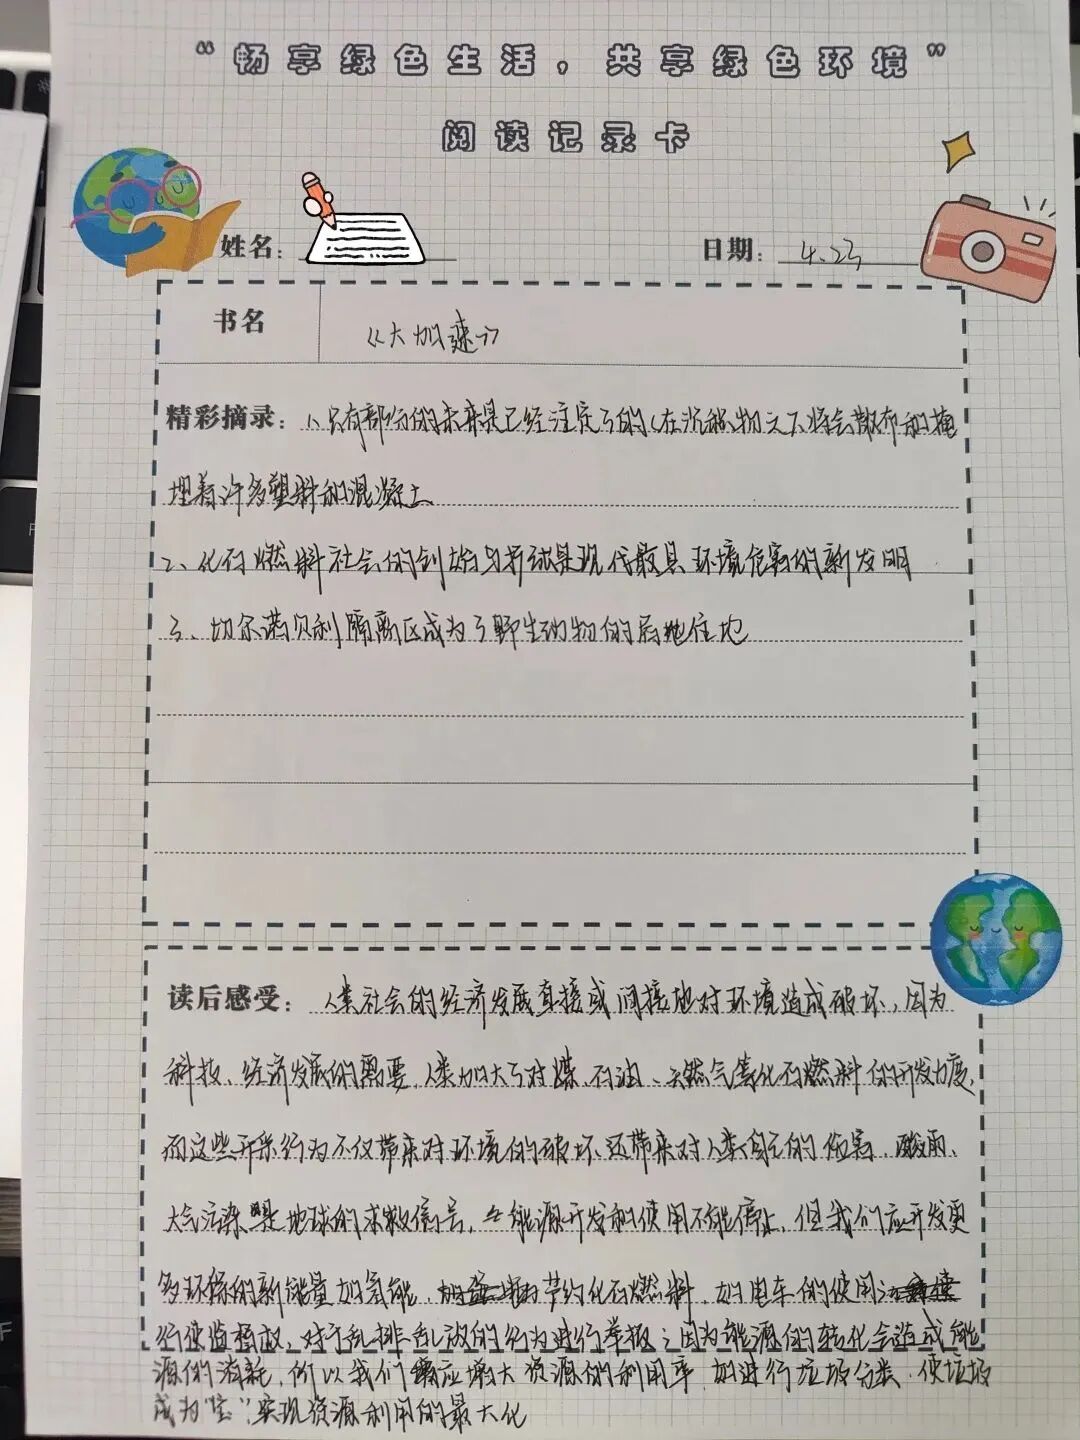 “畅享绿色生活，共享绿色环境”
阅读记录卡
姓名：
日期：4.23
书名
《大加速》
精彩摘录：1、只有部分的未来是已经注定了的(在沉积物之下将会散布和掩
埋着许多塑料和混凝土
2、化石燃料社会的创始与扩张是现代最具环境危害的新发明
3、切尔诺贝利隔离区成为了野生动物的居住地
读后感受：人类社会的经济发展直接或间接地对环境造成破坏，因为
科技、经济发展的需要，人类加大了对煤、石油、天然气等化石燃料的开发力度，
而这些开采行为不仅带来对环境的破坏，还带来对人类自己的危害，酸雨、
大气污染是地球的求救信号，能源开发和使用不能停止，但我们应开发更
多环保的新能量如氢能，节约化石燃料，如电车的使用；
行使监督权，对于乱排乱放的行为进行举报；因为能源的转化会造成能
源的消耗，所以我们应增大资源的利用率，如进行垃圾分类，使垃圾
成为“宝”，实现资源利用的最大化